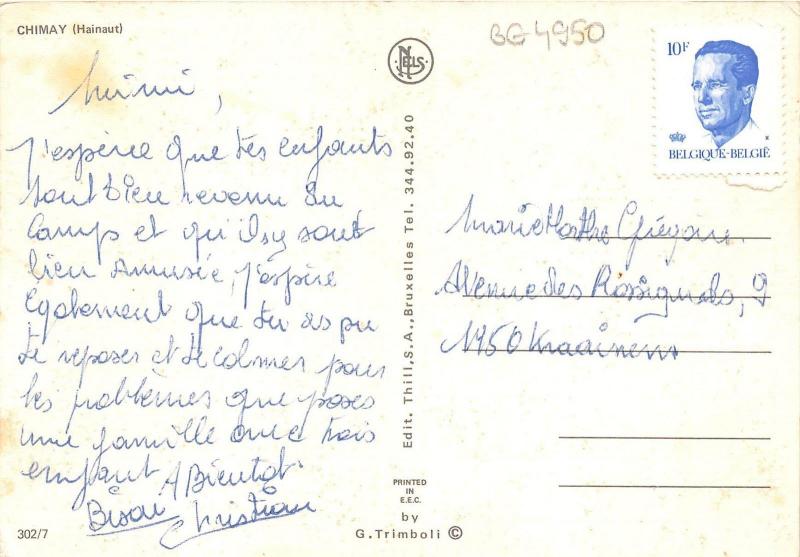 CHIMAY (Hainaut)
BG 4950
NELS
10F
BELGIQUE-BELGIË
Mimi,
J'espère que tes enfants
sont bien revenu du
Camps et qu'ils y sont
bien Amusée, j'espère
également que tu as pu
te reposer et te calmer pour
les problèmes que poses
une famille avec trois
enfant. A Bientot.
Christian
Edit. Thill, S.A., Bruxelles Tel. 344.92.40
Marie Marthe
Avenue des Rossignols, 9
1950 Kraainem
302/7
PRINTED
IN
E.E.C.
by
G. Trimboli ©